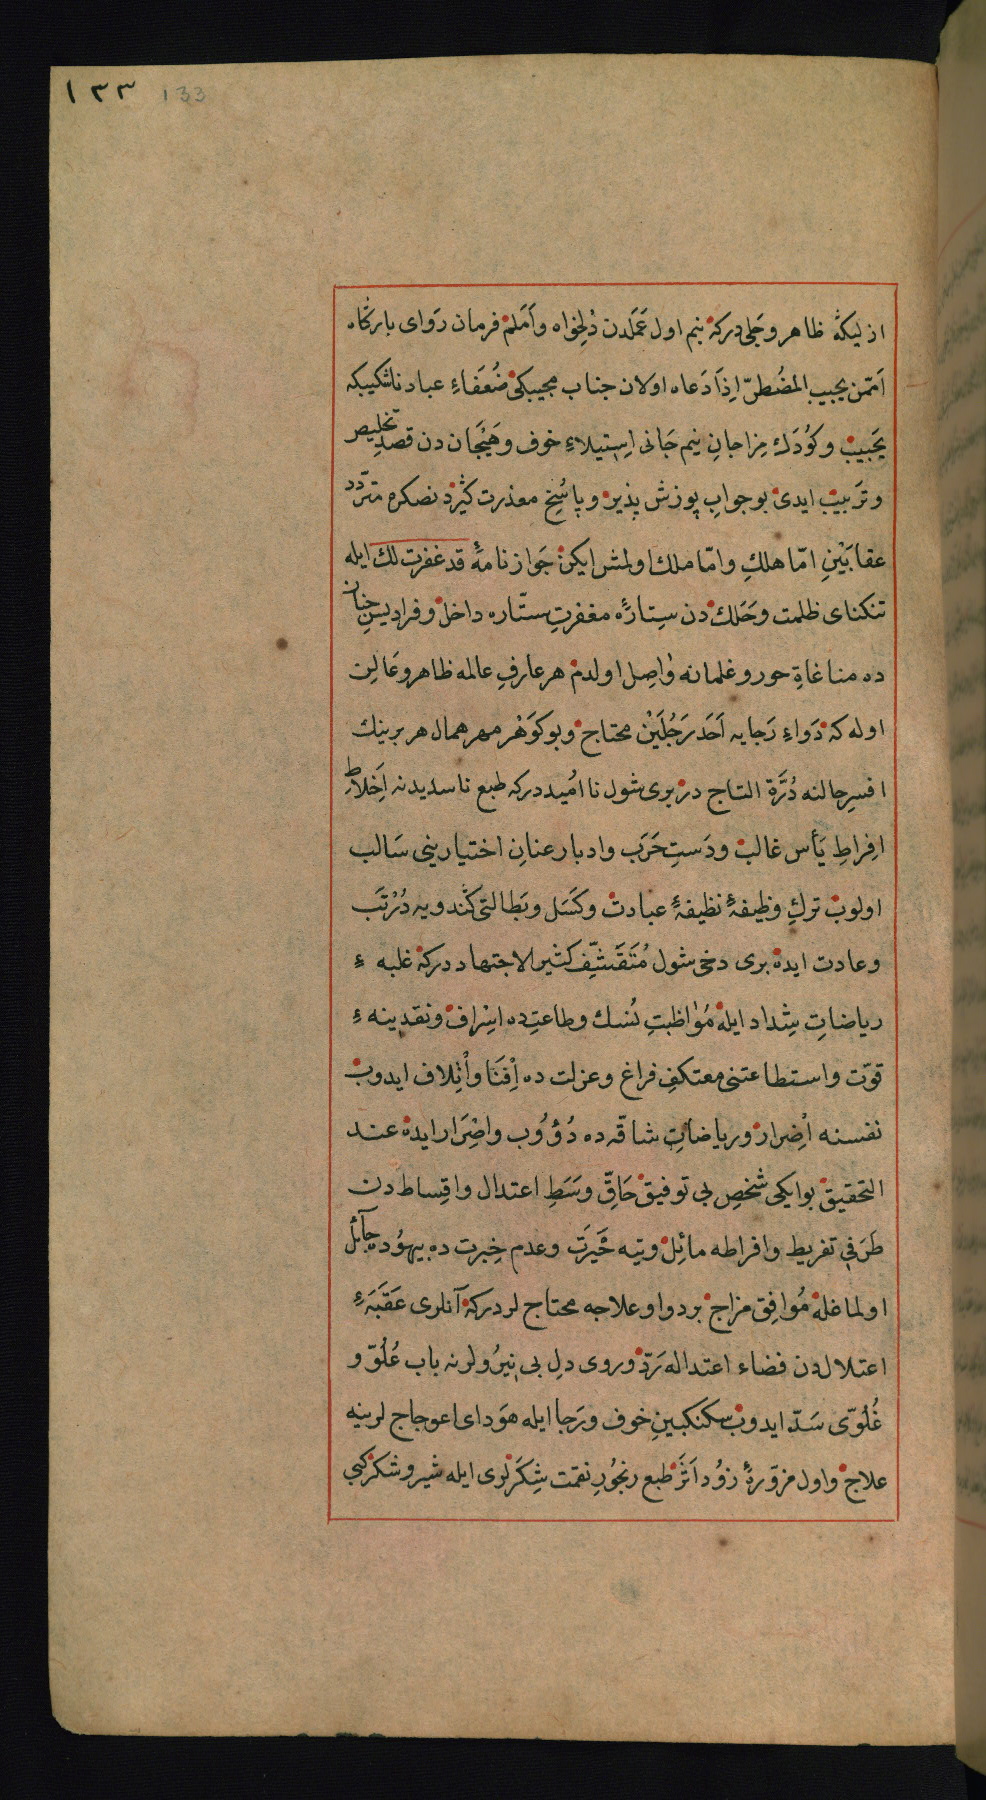 ١٣٣ 133
ازلیكه ظاهر وجلیدركه بنم اول عَمَلدن دُلخواه و اَمَلم فرمان رَوای بارگاه
اَمّن یجیب المضُطرّ اِذَا دَعاه اولان جناب مجیبكی ضُعَفاءِ عباد ناشكیبكه
یَجبیبْ وكوُدَك مِزاجانِ نیم جَانی اِستِیلاءِ خوف وهَیَجان دن قصدِ تخلیص
وترَبیبْ ایدی بوجوابِ پوزش پذیر و پاسُخِ معذرت كثیردنصكره متردّد
عقابَیْنِ امّا هلكِ وامّا ملك اولمش ایكن جَوازنامۀ قد غفرت لك ایله
تنكنای ظلمت وحَلَك دن سِتارۀ مغفرتِ ستّاره داخل وفرادیسِ جنان
ده مناغاةِ حور وغلمانه وٰاصِل اولدم هر عارفِ عالمه ظاهر وعَالِن
اوله كه دَواءِ رَجایه اَحَد رَجُلَیْن محتاج وبوكوَهْر مهر همال هر برینك
افسرِ حالنه دُرَّة التاج در بری شول ناامُیددركه طبع ناسدیدنه اَخلاطِ
اِفراطِ یَأس غالب ودَستِ حَرَب وادبار عنانِ اختیارینی سَالب
اولوب تركِ وظیفۀ نظیفۀ عبادت وكَسَل وبَطالتی كندویه دُرْتَب
وعادت ایده بری دخی شول مُتَقَشِّف كثیر الاجتهاد دركه غلبه ءِ
ریاضاتِ شِداد ایله مُوٰاظبتِ نُسك وطاعتده اسْراف ونقدینه ءِ
قوّت واستطاعتنی معتكفِ فراغ وعزلت ده اِفْنَا واتْلاف ایدوب
نفسنه اضِرار وریاضاتِ شاقّه ده دُؤوُب واصْرَار ایده عند
التحقیق بو ایكی شخصِ بی توفیق حَاقِّ وسَطِ اعتدال واقِساط دن
طَرَفیِ تفریط وافراطه مائِل وتیه حَیرَت وعدم خِبرت ده بیهوُده جآئل
اولماغله مُوافِقِ مزاج بر دوا وعلاجه محتاج لردركه آنلری عَقَبَۀِ
اعتلالدن فضاء اعتداله رَدّ وروی دلِ بی نیرُولرنه باب عُلُوّ و
غُلُوّی سَدّ ایدوب سكنكبینِ خوف ورَجا ایله هَوَدای اعوجاج لرینه
علاج واول مزوّرۀ زوُد اَثَر طبع رنجُورِ نقمت شِكَرلری ایله شیر وشكر كبی